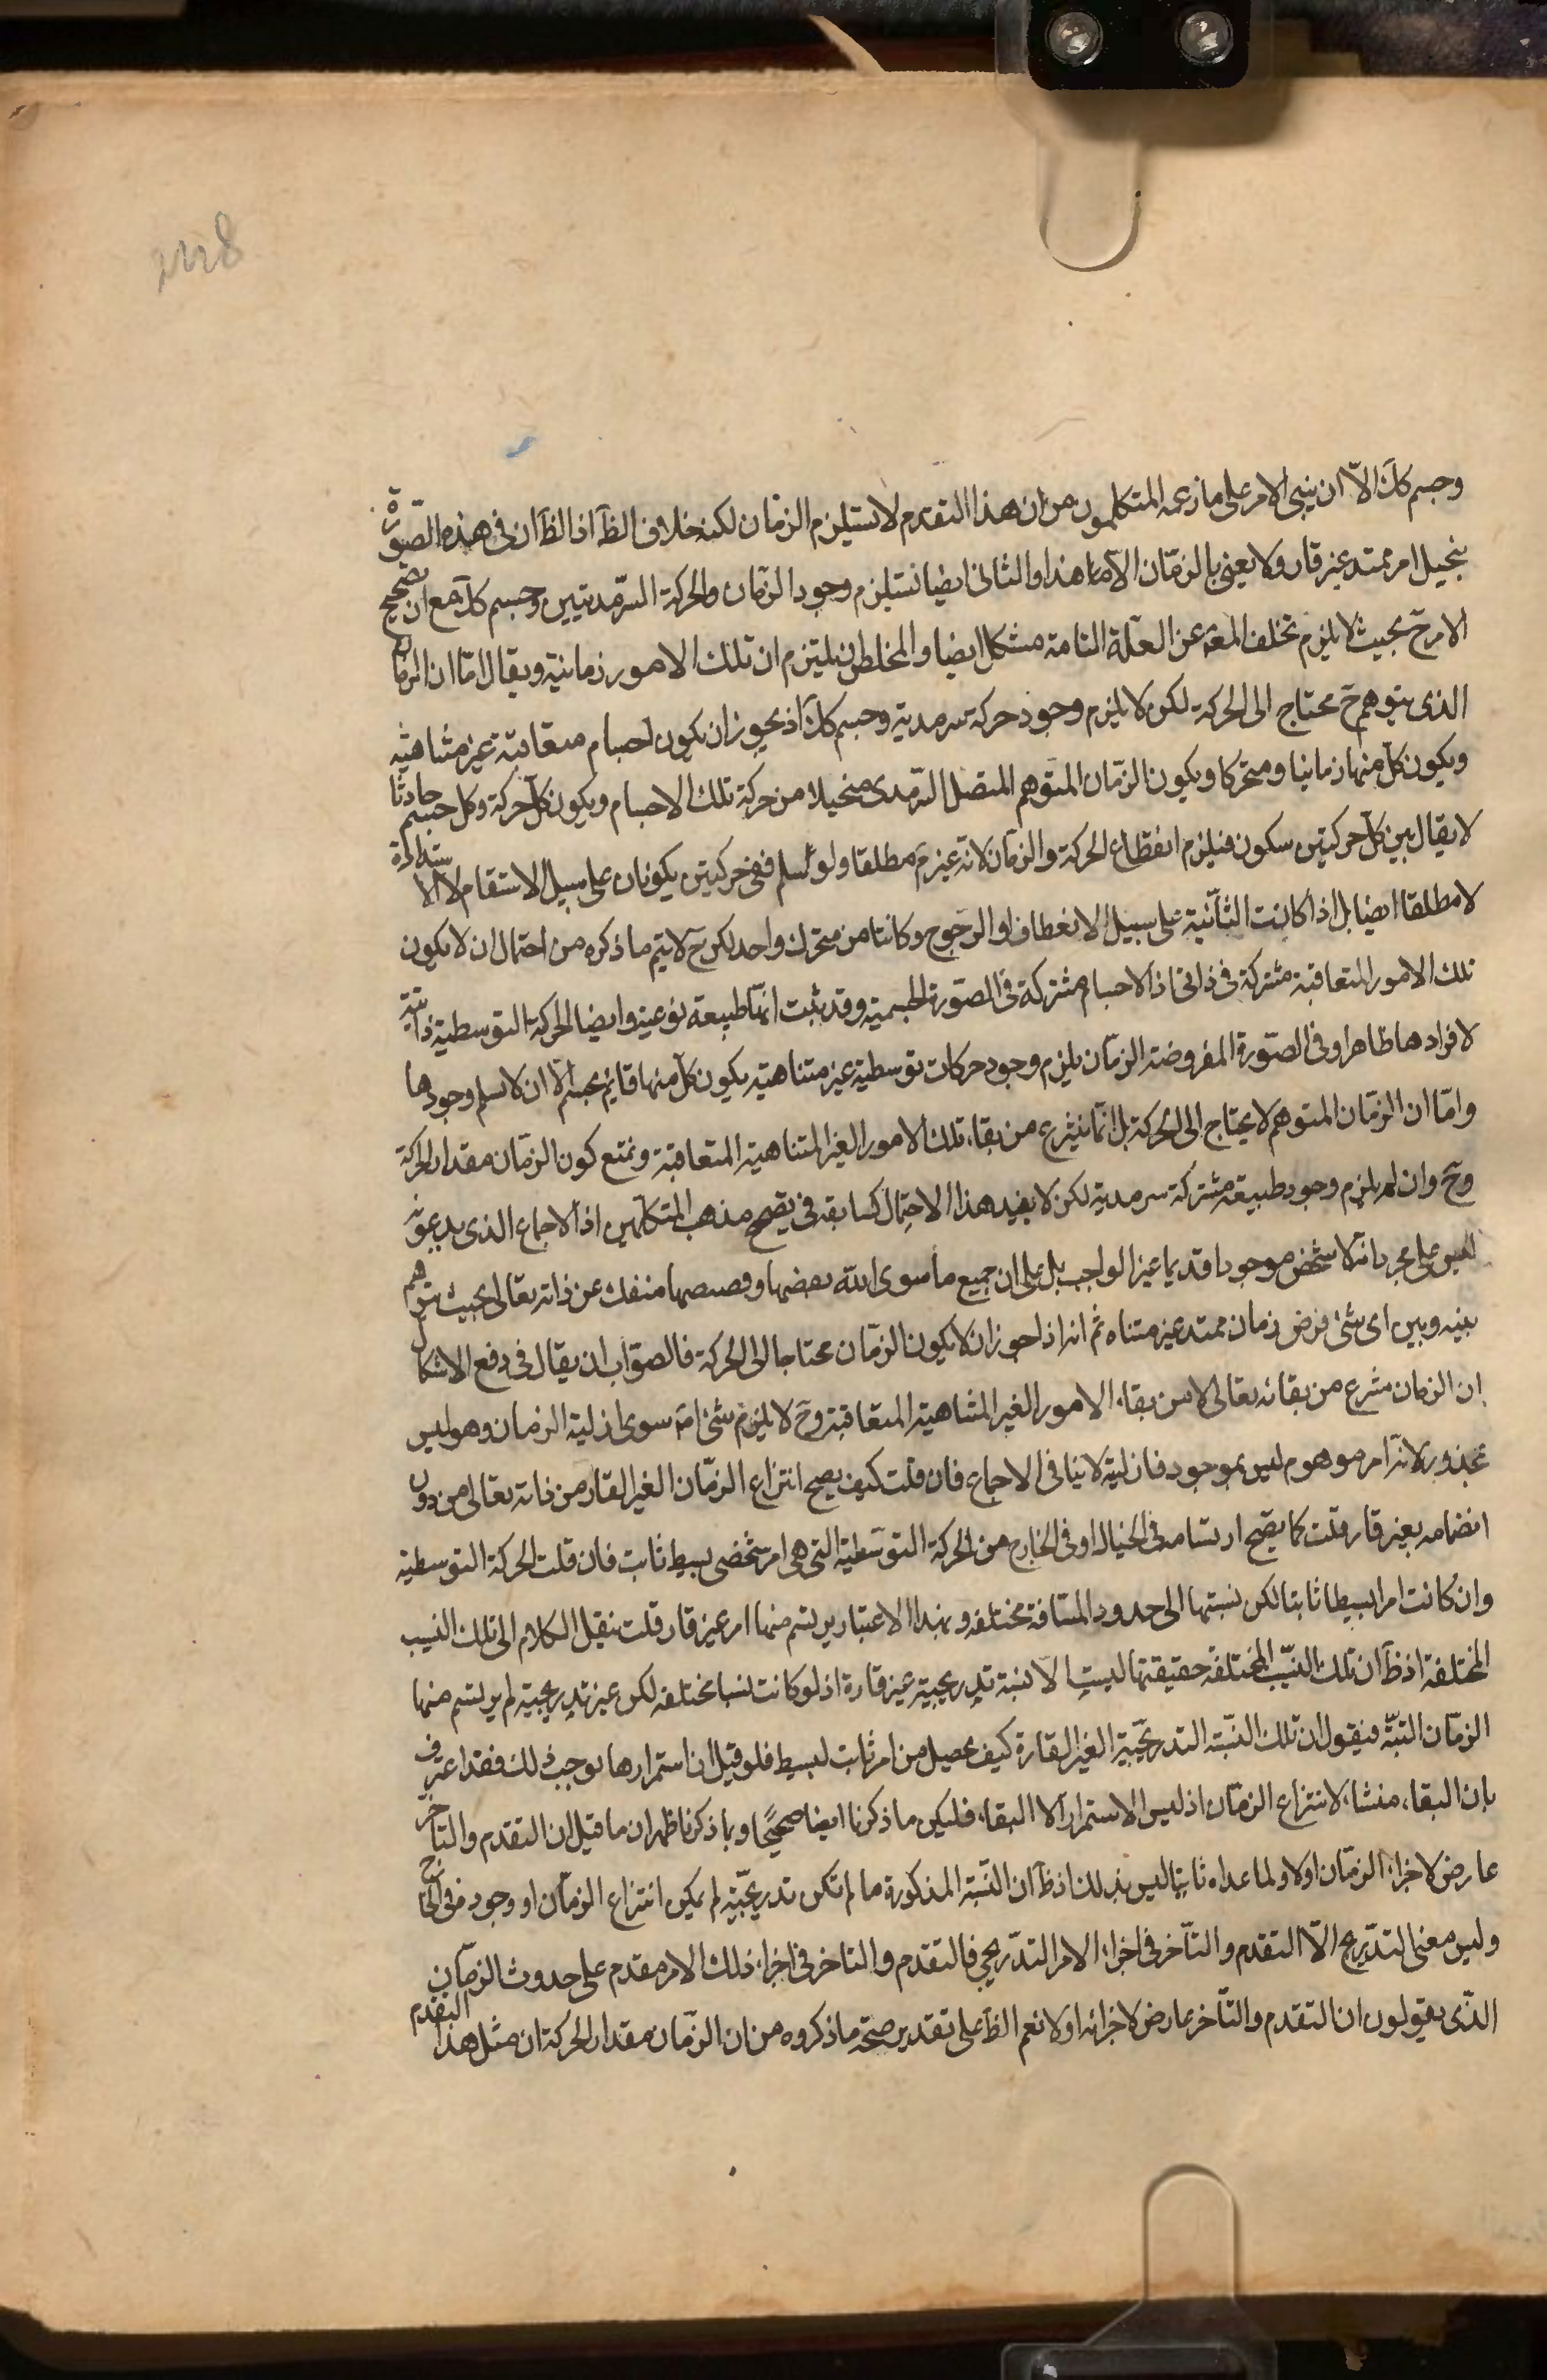 وجسم كك الّا ان يبنى الامر على ما زعمه المتكلمون من ان هذا التقدم لا يستلزم الزمان لكنه خلاف الظّ اذ الظّ ان فى هذه الصّورة
يتخيل امر ممتد غير قار ولا يعنى بالزمّان الّا ما هذا والثانى ايضا يستلزم وجود الزمّان والحركة السرّمديتين وجسم كك مع ان تصحيح
الامر ح بحيث لا يلزم تخلف المعه عن العلّة التامة مشكل ايضا والمخلص ان يلتزم ان تلك الامور زمانية ويقال امّا ان الزمان
الذى يتوهم ح محتاج الى الحركة لكن لا يلزم وجود حركة سرمدية وجسم كك اذ يجوز ان يكون اجسام متعاقبة غير متناهية
ويكون كل منها زمانيا ومتحركا ويكون الزمّان المتوهم المتصل السرّمدى متخيلا من حركة تلك الاجسام ويكون كل حركة وكل جسم حادثا
لا يقال بين كل حركتين سكون فيلزم انقطاع الحركة والزمّان لانه غير مَ مطلقا ولو سلم ففى حركتين يكونان على سبيل الاستقامة لا الاستدارة
لا مطلقا ايضا بل اذا كانت الثانية على سبيل الانعطاف او الرجوع وكانتا من متحرك واحد لكن ح لا يتم ما ذكره من احتمال ان لا يكون
تلك الامور المتعاقبة مشتركة فى ذاتى اذ الاجسام مشتركة فى الصّورة الجسمية وقد ثبت انها طبيعة نوعية وايضا الحركة التوسطية ذاتية
لافرادها ظاهرا وفى الصّورة المفروضة الزمّان يلزم وجود حركات توسطية غير متناهية يكون كل منها قائم بجسم الّا ان لا يسلم وجودها
وامّا ان الزمّان المتوهم لا يحتاج الى الحركة بل انّما ينتزع من بقاء تلك الامور الغير المتناهية المتعاقبة ونمنع كون الزمّان مقدار الحركة
وح وان لم يلزم وجود طبيعة مشتركة سرمدية لكن لا يفيد هذا الاحتمال كسابقه فى تصحيح مذهب المتكلمين اذ الاجماع الذى يدعونه
ليس على مجرد انه لا شخص موجودا قديما غير الواجب بل على ان جميع ما سوى الله بعضها وقصيصها منفك عن ذاته تعالى بحيث يتوهم
بينه وبين اى شئ فرض زمان ممتد غير متناه ثم انه اذا جوز ان لا يكون الزمّان محتاجا الى الحركة فالصوّاب ان يقال فى دفع الاشكال
ان الزمان منتزع من بقائه تعالى لا من بقاء الامور الغير المتناهية المتعاقبة وح لا يلزم شئ اصَ سوى ازلية الزمان وهو ليس
بمحذور لانه امر موهوم ليس بموجود فازليته لا ينافى الاجماع فان قلت كيف يصح انتزاع الزمّان الغير القار من ذاته تعالى من دون
انضمامه بغير قار قلت كما يصح ارتسامه فى الخيال او فى الخارج من الحركة التوسّطية التى هى امر شخصى بسيط ثابت فان قلت الحركة التوسطية
وان كانت امرا بسيطا ثابتا لكن نسبتها الى حدود المسافة مختلفه وبهذا الاعتبار يرتسم منها امر غير قار قلت ننقل الكلام الى تلك النسب
المختلفة اذ ظّ ان تلك النسّب المختلفة حقيقتها ليست الا نسبة تدريجية غير قارة اذ لو كانت نسبا مختلفه لكن غير تدريجية لم يرتسم منها
الزمّان البتّه فنقول ان تلك النسّبة التدريجّية الغير القارة كيف يحصل من امر ثابت بسيط فلو قيل ان استمرارها يوجب ذلك فقد اعترف
بان البقاء منشاء لانتزاع الزمّان اذ ليس الاستمرار الا البقاء فليكن ما ذكرنا ايضا صحيحًا وبما ذكرنا ظهر ان ما قيل ان التقدم والتاخر
عارض لاجزاء الزمّان اولا ولما عداه ثانيا ليس بذلك اذ ظّ ان النسّبة المذكورة ما لم تكن تدريجّية لم يكن انتزاع الزمّان او وجوده فى الخارج
وليس معنى التدّريج الّا التقدم والتأخر فى اجزاء الامر التدّريجى فالتقدم والتاخر فى اجزاء ذلك الامر مقدم على حدوث الزمّان
الذّى يقولون ان التقدم والتأخر عارض لاجزائه اولا نعم الظّ على تقدير صحّة ما ذكروه من ان الزمّان مقدار الحركة ان مثل هذا التقدم